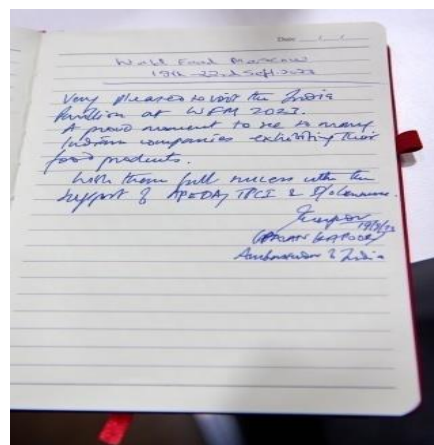 Date: / /
World Food Moscow
19th - 22nd Sept. 2023
Very pleased to visit the India
Pavilion at WFM 2023.
A proud moment to see so many
Indian companies exhibiting their
food products.
Wish them full success with the
support of APEDA, TPCI & D/oCommerce.
19/9/23
(PAVAN KAPOOR)
Ambassador of India